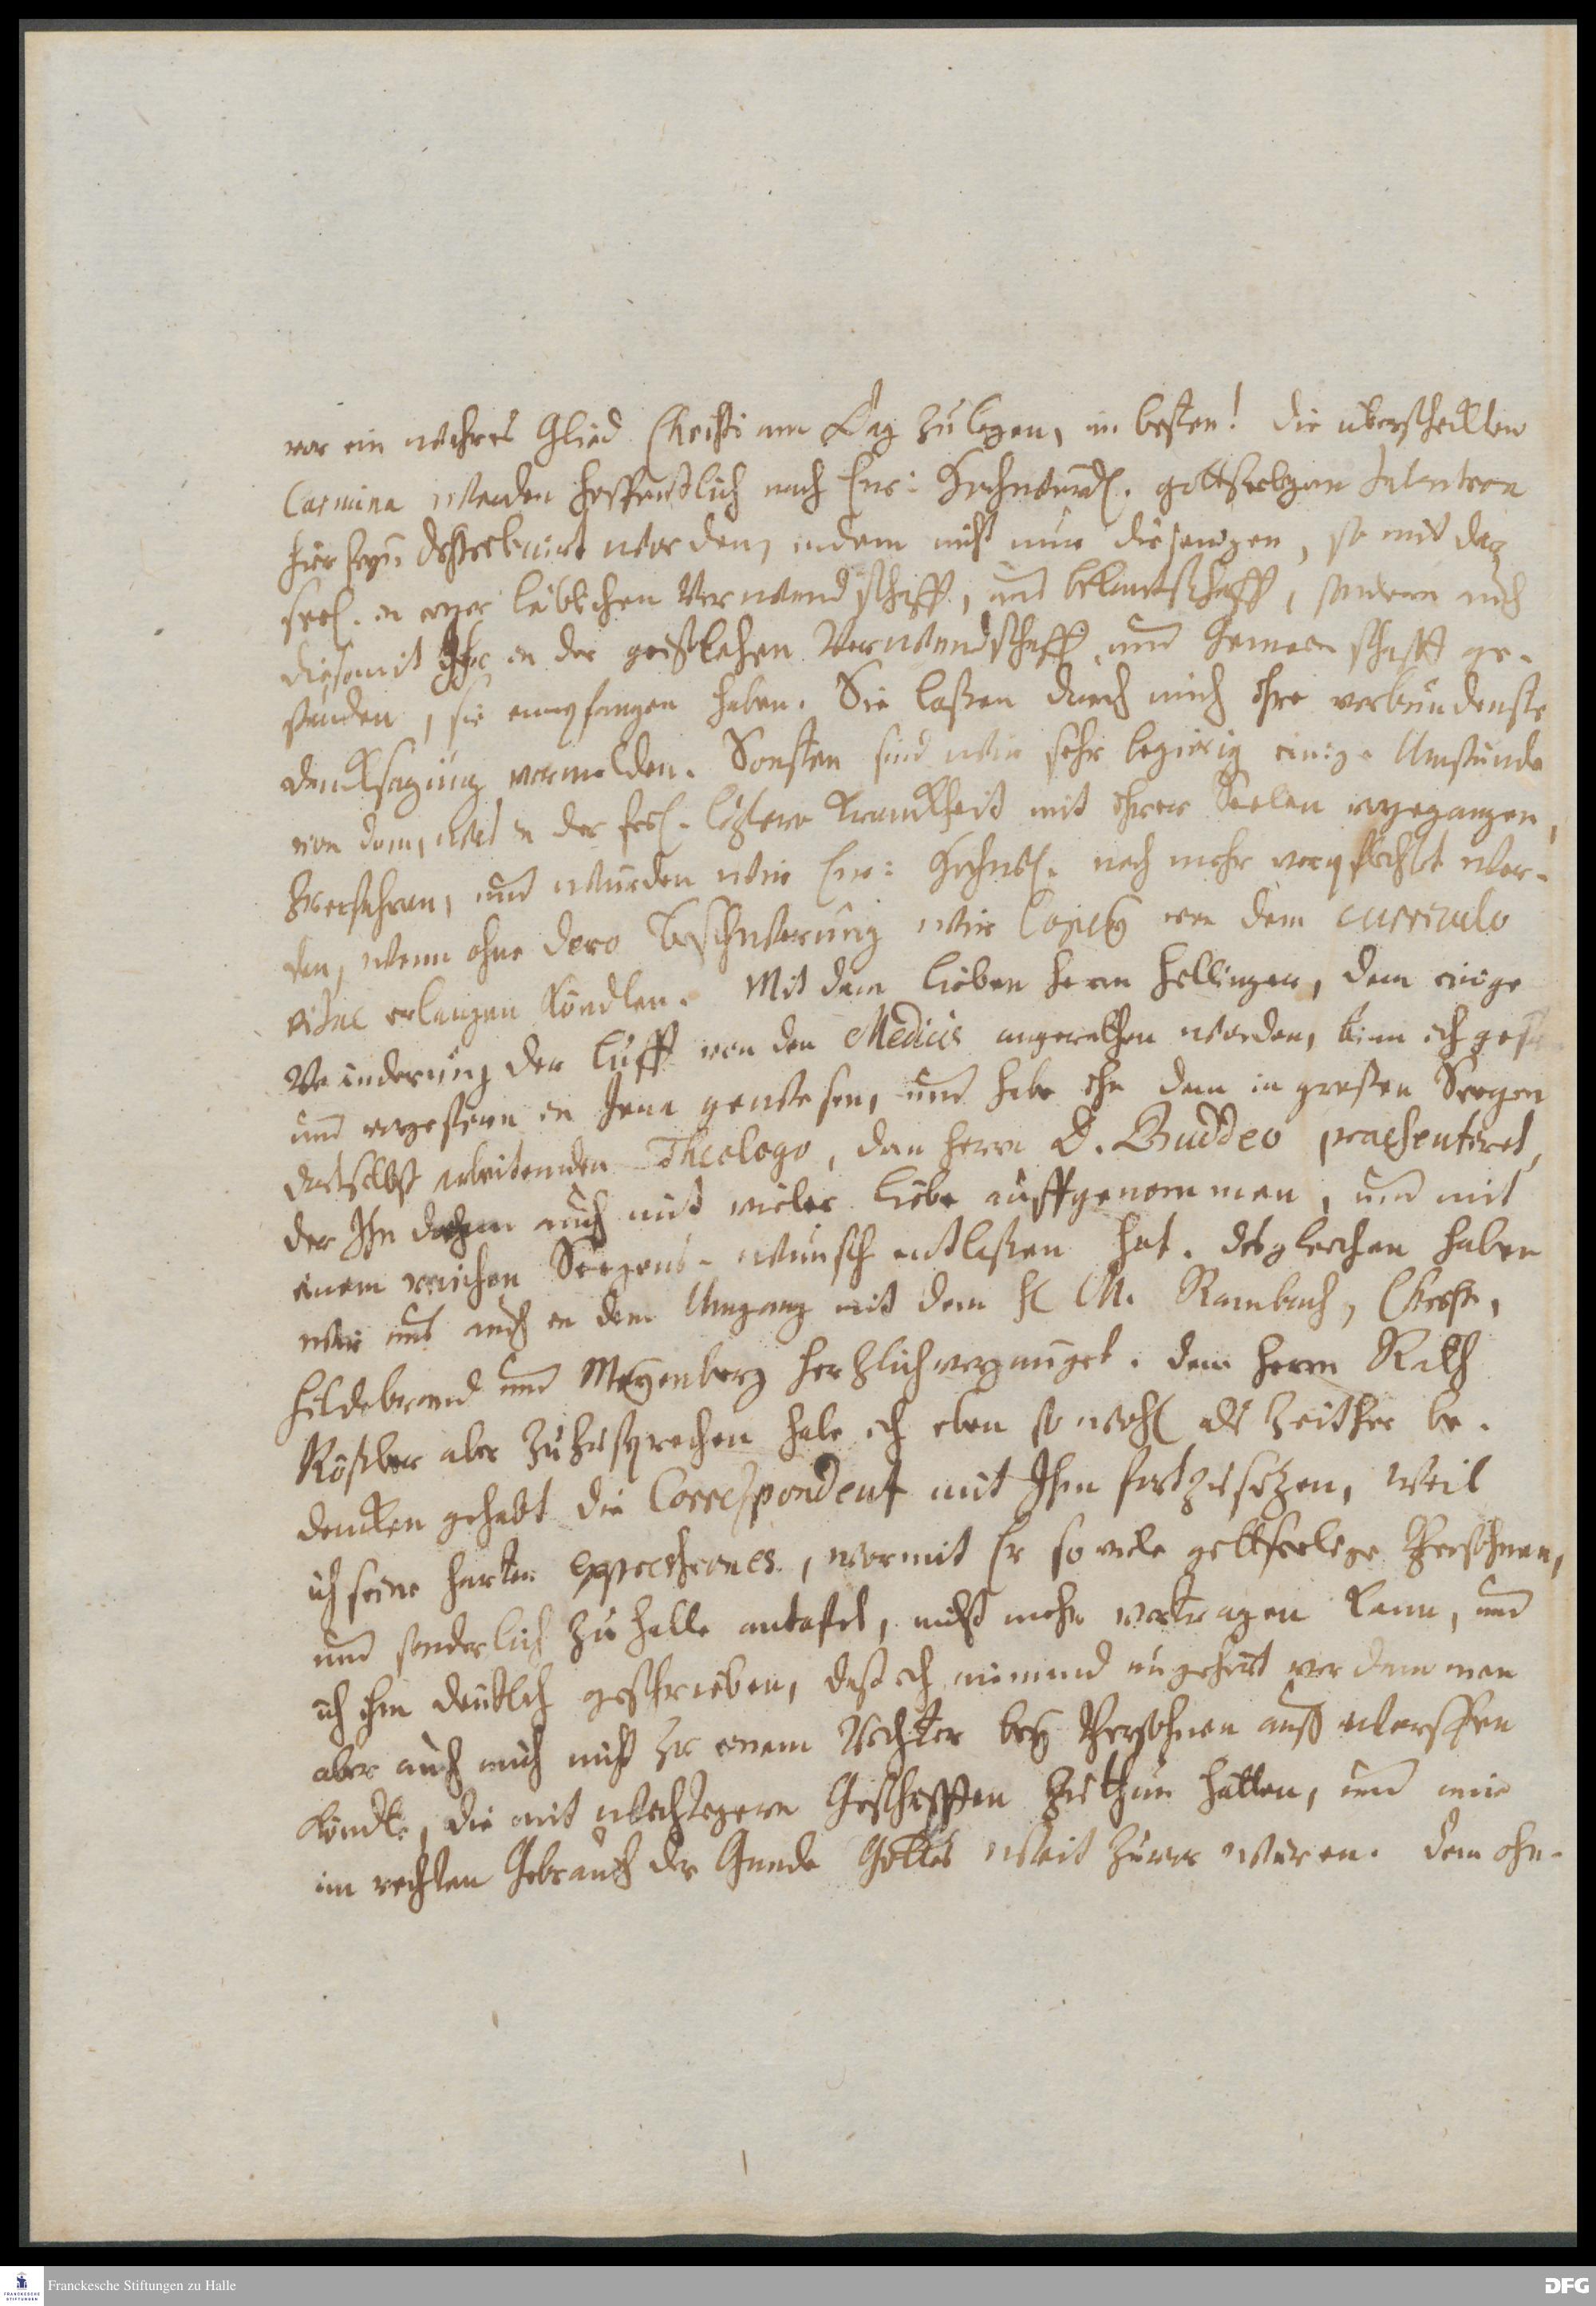 vor ein wahres Glied Christi am Tag zu legen, im besten! die überschickten
Carmina werden hoffentlich nach Ew: Hochwürd. gottseeligen Intention
hier seyn distribuirt worden, indem nicht nur diejenigen, so mit der
seel. in einer leiblichen Verwandschafft, und bekantschafft, sondern auch
die so mit Ihr in der geistlichen Verwandschafft und Gemeinschafft ge-
standen, sie empfangen haben. Sie laßen durch mich ihre verbundenste
dancksagung vermelden. Sonsten sind wir sehr begierig einige Umstände
von dem, was in der seel. letztern Kranckheit mit ihrer Seelen vorgegangen,
zu erfahren, und würden wir Ew: Hochw. noch mehr verpflichtet wer-
den, wenn ohne dero Beschwerung wir Copiam von dem curriculo
vitae erlangen köndten. Mit dem lieben Herrn Hellinger, dem einige
Veränderung der Lufft von den Medicis angerathen worden, bin ich
und vorgestern in Jena gewesen, und habe ihn dem in großen Seegen
daselbst arbeitenden Theologo, dem Herrn D. Buddeo praesentiret,
der Ihn auch mit vieler Liebe auffgenommen, und mit
einem reichen Seegens-wunsch entlaßen hat. desgleichen haben
wir uns auch in dem Umgang mit dem H. M. Rambach,
Hildebrand und Meyenberg hertzlich vergnüget. dem Herrn Rath
Rößler aber zuzusprechen habe ich eben so wohl als zeither be-
dencken gehabt die Correspondent mit Ihm fortzusetzen, weil
ich seine harten expressiones, wormit Er so viele gottseelige Persohnen,
und sonderlich zu Halle antastet, nicht mehr vertragen kann, und
ich ihm deutlich geschrieben, daß ich niemand ungehört verdammen
aber auch mich nicht zu einem Richter bey Persohnen auffwerffen
köndte, die mit wichtigern Geschefften zuthun hätten, und mir
im rechten Gebrauch der Gnade Gottes weit zuvor wären. dem ohn-
Franckesche Stiftungen zu Halle
DFG